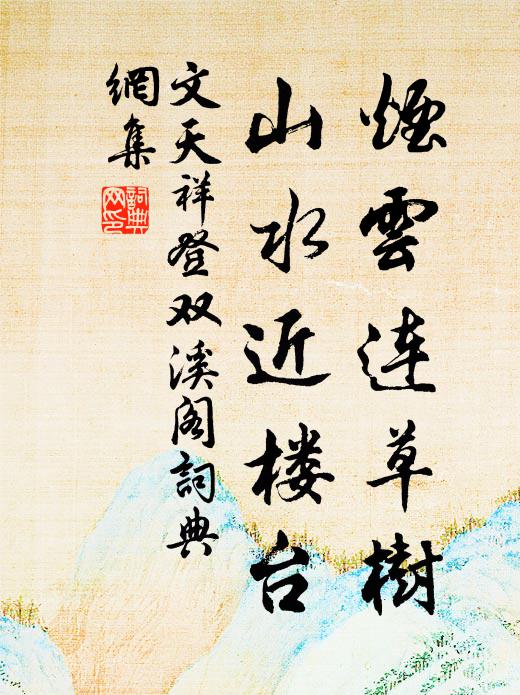 煙雲連草樹
山水近楼台
文天祥登双溪阁詞典
網集
詞典
网印